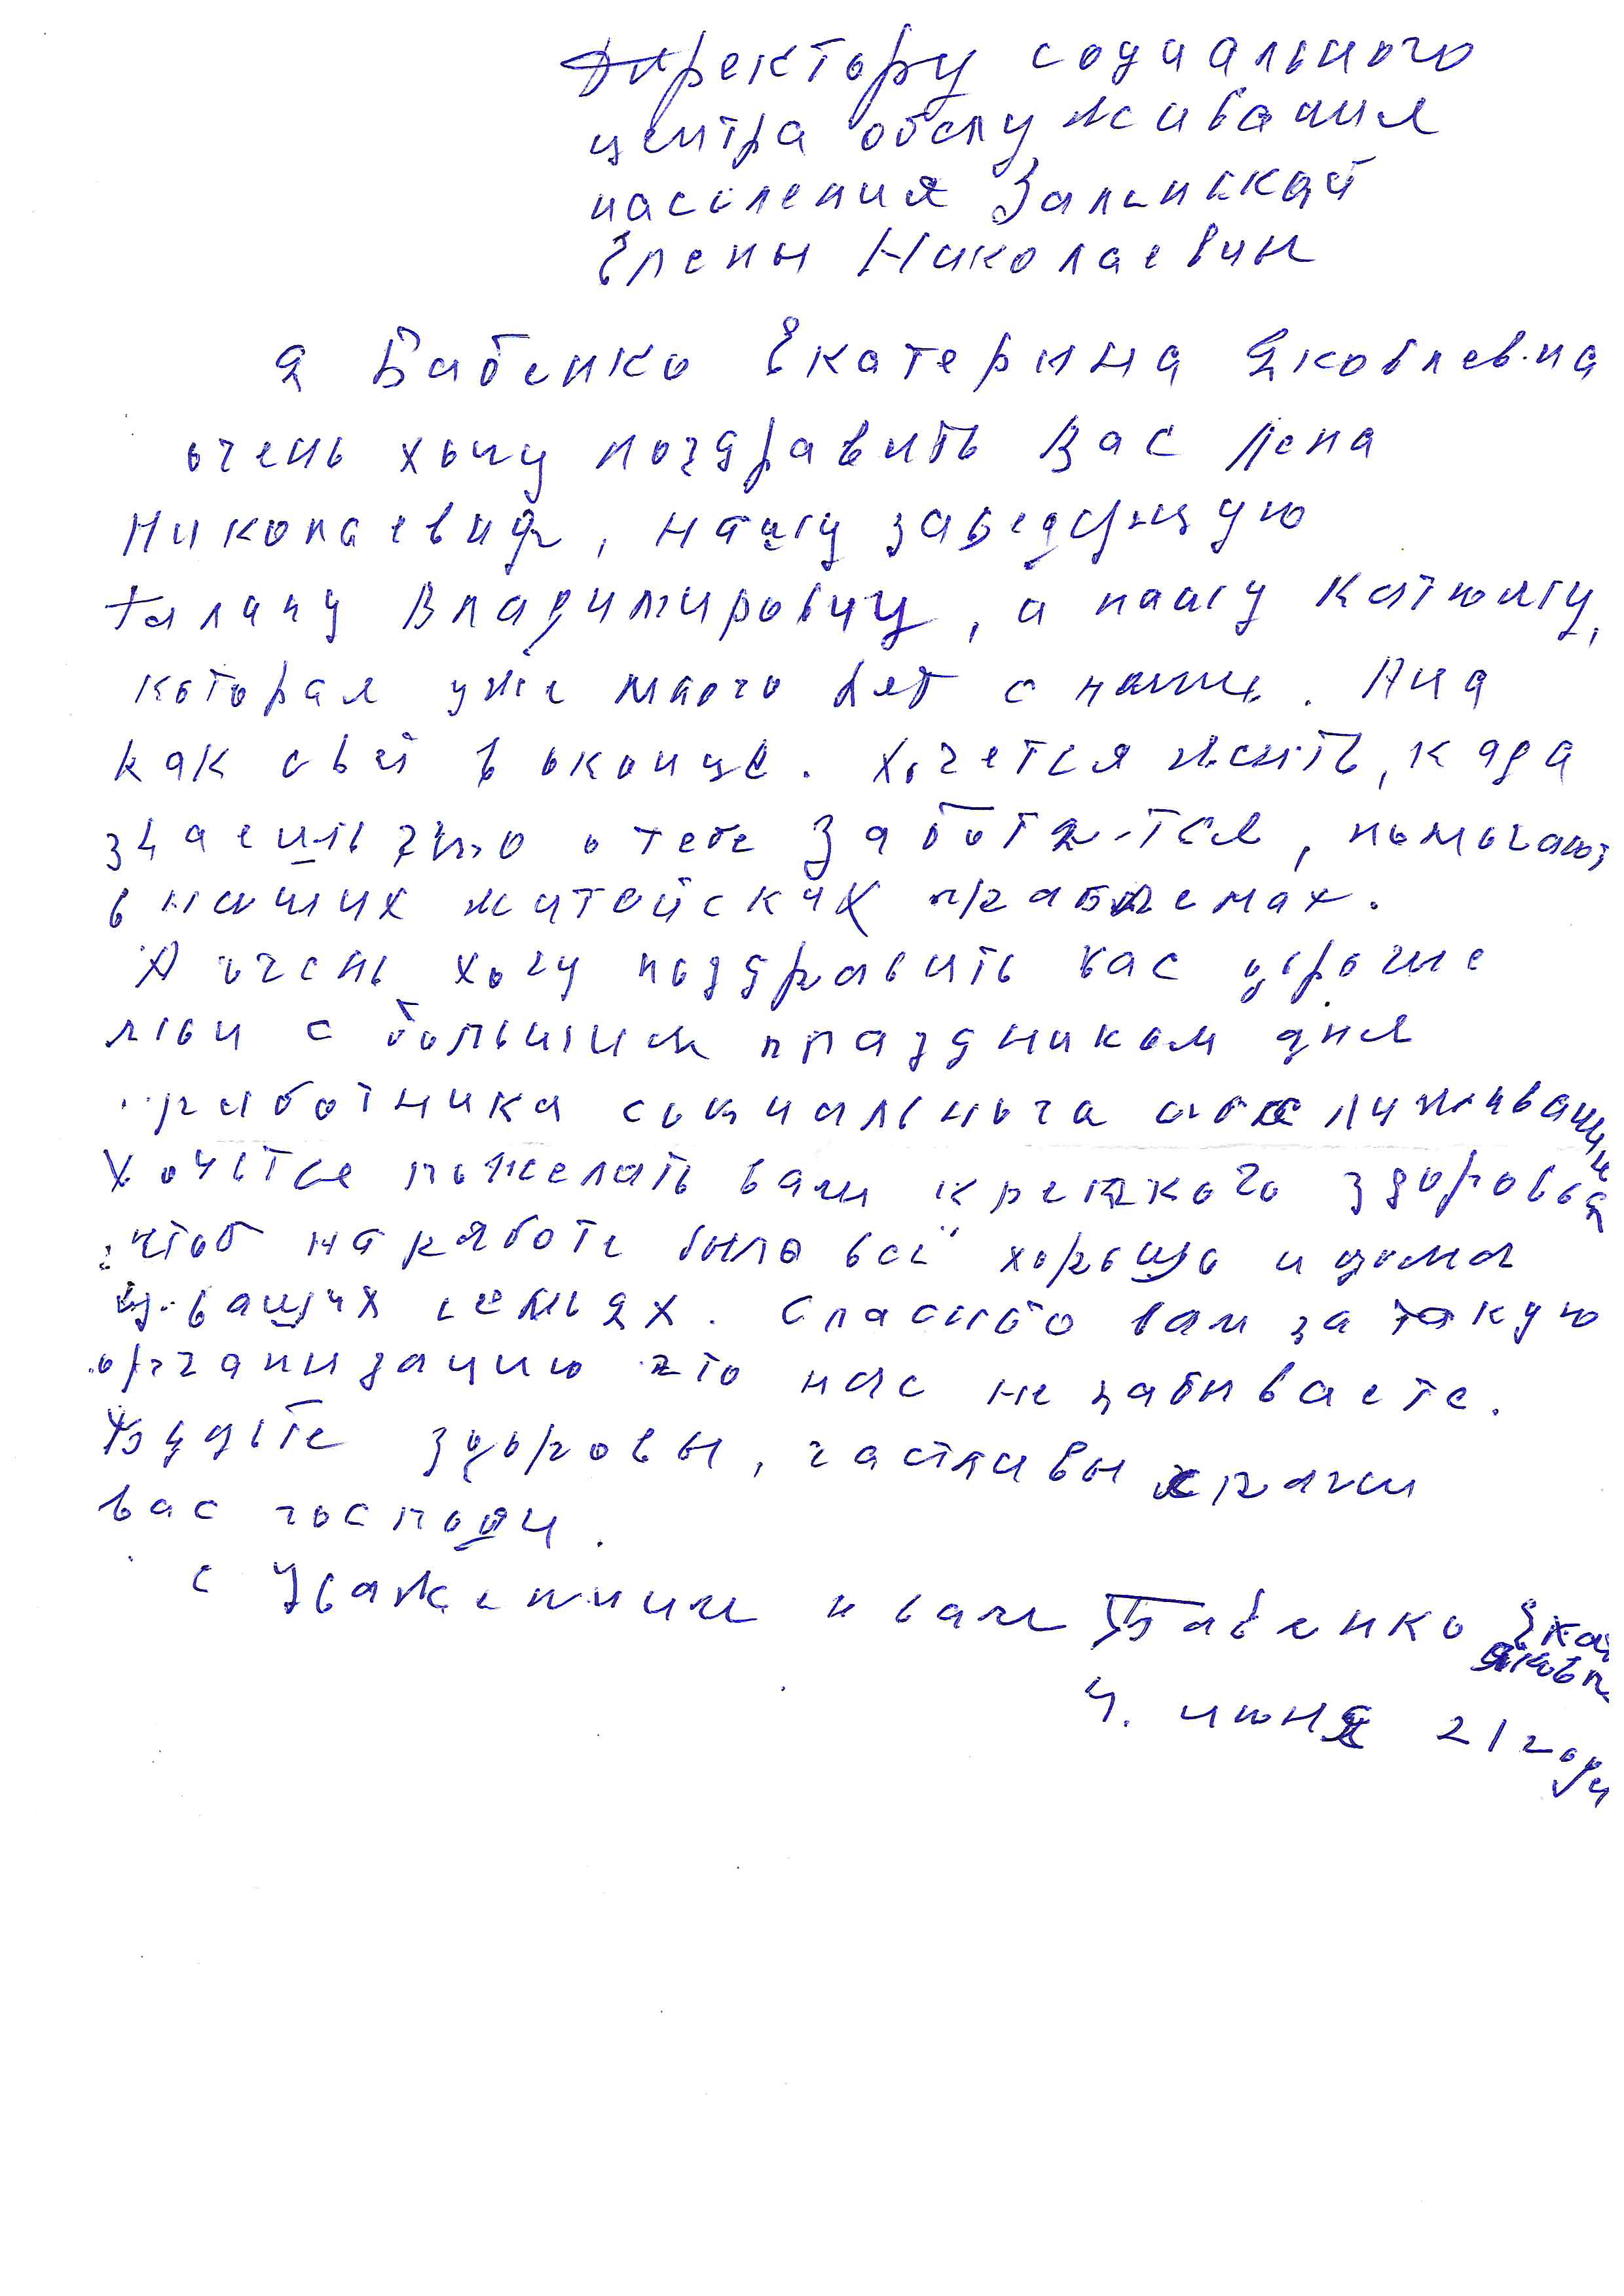 Директору социального
центра обслуживания
населения Залинской
Елены Николаевны
Я Бабенко Екатерина Яковлевна
очень хочу поздравить Вас Лена
Николаевна, нашу заведующую
Галину Владимировну, а нашу Катюшу,
которая уже много лет с нами. Ана
как свет в оконце. Хочется жить, када
знаешь что о тебе заботятся, помогают
в наших житейских праблемах.
А очень хочу поздравить вас дорогие
мои с большим праздником дня
работника социальнога обслуживания
Хочется пожелать вам крепкого здоровья
чтоб на работе было всё хорошо и дома
в ваших семьях. Спасибо вам за такую
организацию что нас не забываете.
Будьте здоровы, частливы храни
вас господи.
С Уважением к вам Бабенко Ека
Яковл
4. июня 21 года